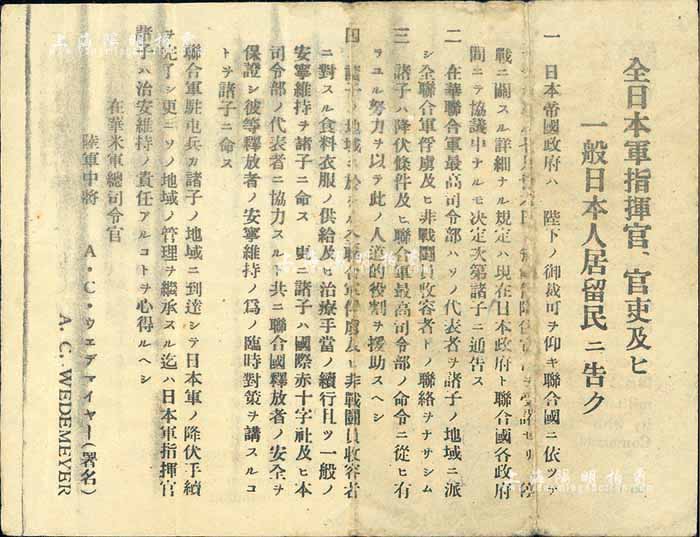 全日本軍指揮官、官吏及ヒ
一般日本人居留民ニ告ク
一 日本帝國政府ハ 陛下ノ御裁可ヲ仰キ聯合國ニ依ツテ
受諾セリ 停
戰ニ關スル詳細ナル規定ハ現在日本政府ト聯合國各政府
間ニテ協議中ナルモ決定次第諸子ニ通告ス
二 在華聯合軍最高司令部ハソノ代表者ヲ諸子ノ地域ニ派
シ全聯合軍俘虜及ヒ非戰鬪員收容者トノ聯絡ヲナサシム
三 諸子ハ降伏條件及ヒ聯合軍最高司令部ノ命令ニ從ヒ有
ラユル努力ヲ以テ此ノ人道的役割ヲ援助スヘシ
四 諸子ノ地域ニ於ケル全聯合軍俘虜及ヒ非戰鬪員收容者
ニ對スル食料衣服ノ供給及ヒ治療手當ノ續行且ツ一般ノ
安寧維持ヲ諸子ニ命ス 更ニ諸子ハ國際赤十字社及ヒ本
司令部ノ代表者ニ協力スルト共ニ聯合國釋放者ノ安全ヲ
保證シ彼等釋放者ノ安寧維持ノ爲ノ臨時對策ヲ講スルコ
トヲ諸子ニ命ス
聯合軍駐屯兵カ諸子ノ地域ニ到達シテ日本軍ノ降伏手續
ヲ完了シ更ニソノ地域ノ管理ヲ繼承スル迄ハ日本軍指揮官
諸子ハ治安維持ノ責任アルコトヲ心得ルヘシ
在華米軍總司令官
陸軍中將 A・C・ウェデマイヤー(署名)
A. C. WEDEMEYER